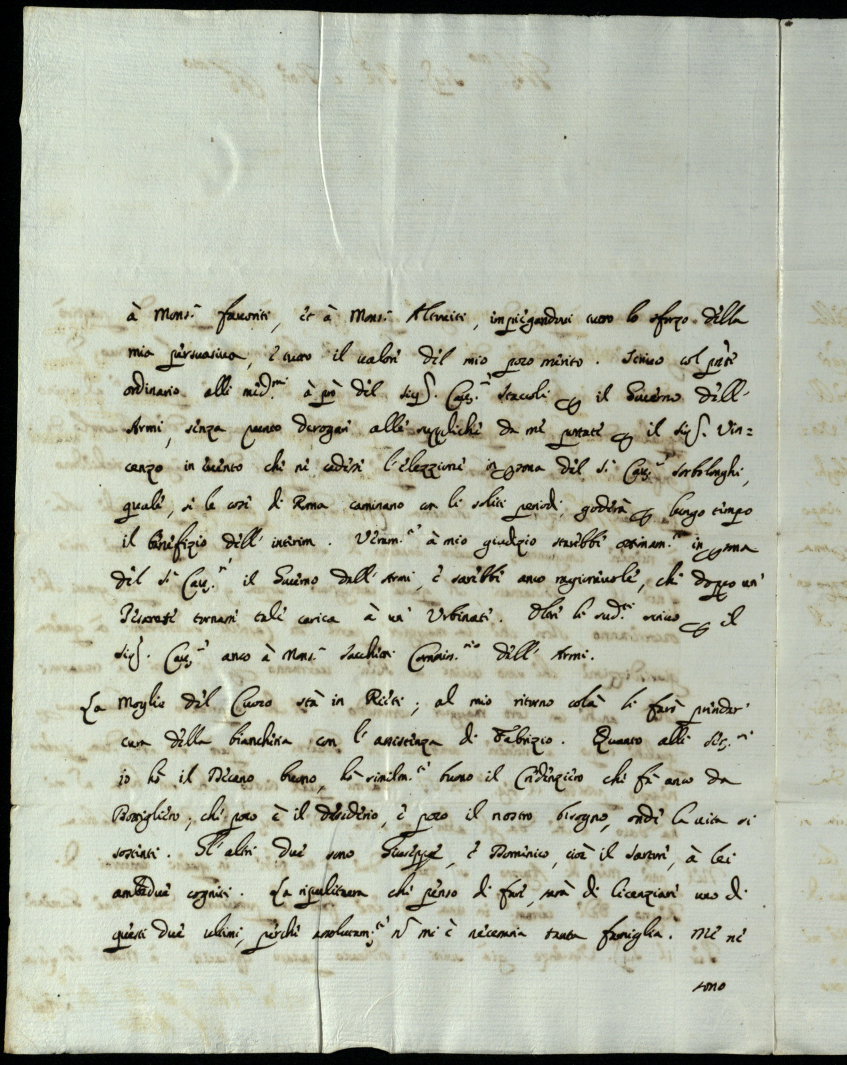 à Mons.r Favoriti, et à Mons.r Altoviti, impiegandovi tutto lo sforzo della
mia persuasiva, e tutto il valore del mio poco merito. Scrivo col pñte
ordinario alli med.mi à prò del Sig.r Cav.re Staccoli per il Governo dell'
Armi, senza punto derogare alle suppliche da me portate per il Sig.r Vin=
cenzo in evento che ne cedesse l'elezzione in persona del S.r Cav.re Sorbolonghi,
quale, se le cose di Roma caminano con li soliti periodi, goderà per lungo tempo
il benefizio dell'interim. Veram.te à mio giudizio starebbe ottimam.te in persona
del S.r Cav.re il Governo dell'Armi, e sarebbe anco ragionevole, che doppo un'
Pesarese tornasse tale carica à un' Urbinate. Oltre li sud.ti scrivo per il
Sig.r Cav.re anco à Mons.r Sacchetti Commiss.rio dell'Armi.
La Moglie del Cuoco stà in Rieti; al mio ritorno colà li farò prender'
cura della biancheria con l'assistenza di Fabrizio. Quanto alli Ser.ri
io hò il Decano buono, hò similm.te buono il Credenziero che fà anco da
Bottigliero; che poco è il desiderio, e poco il nostro bisogno, onde la vita si
sostenti. Gl'altri due sono Giuseppe, e Domenico, cioè il Sartore, à lei
ambedue cogniti. La ripulitura che penso di fare, sarà di licenziare uno di
questi due ultimi, perche assolutam.te nõ mi è necessaria tanta famiglia. Me ne
sono